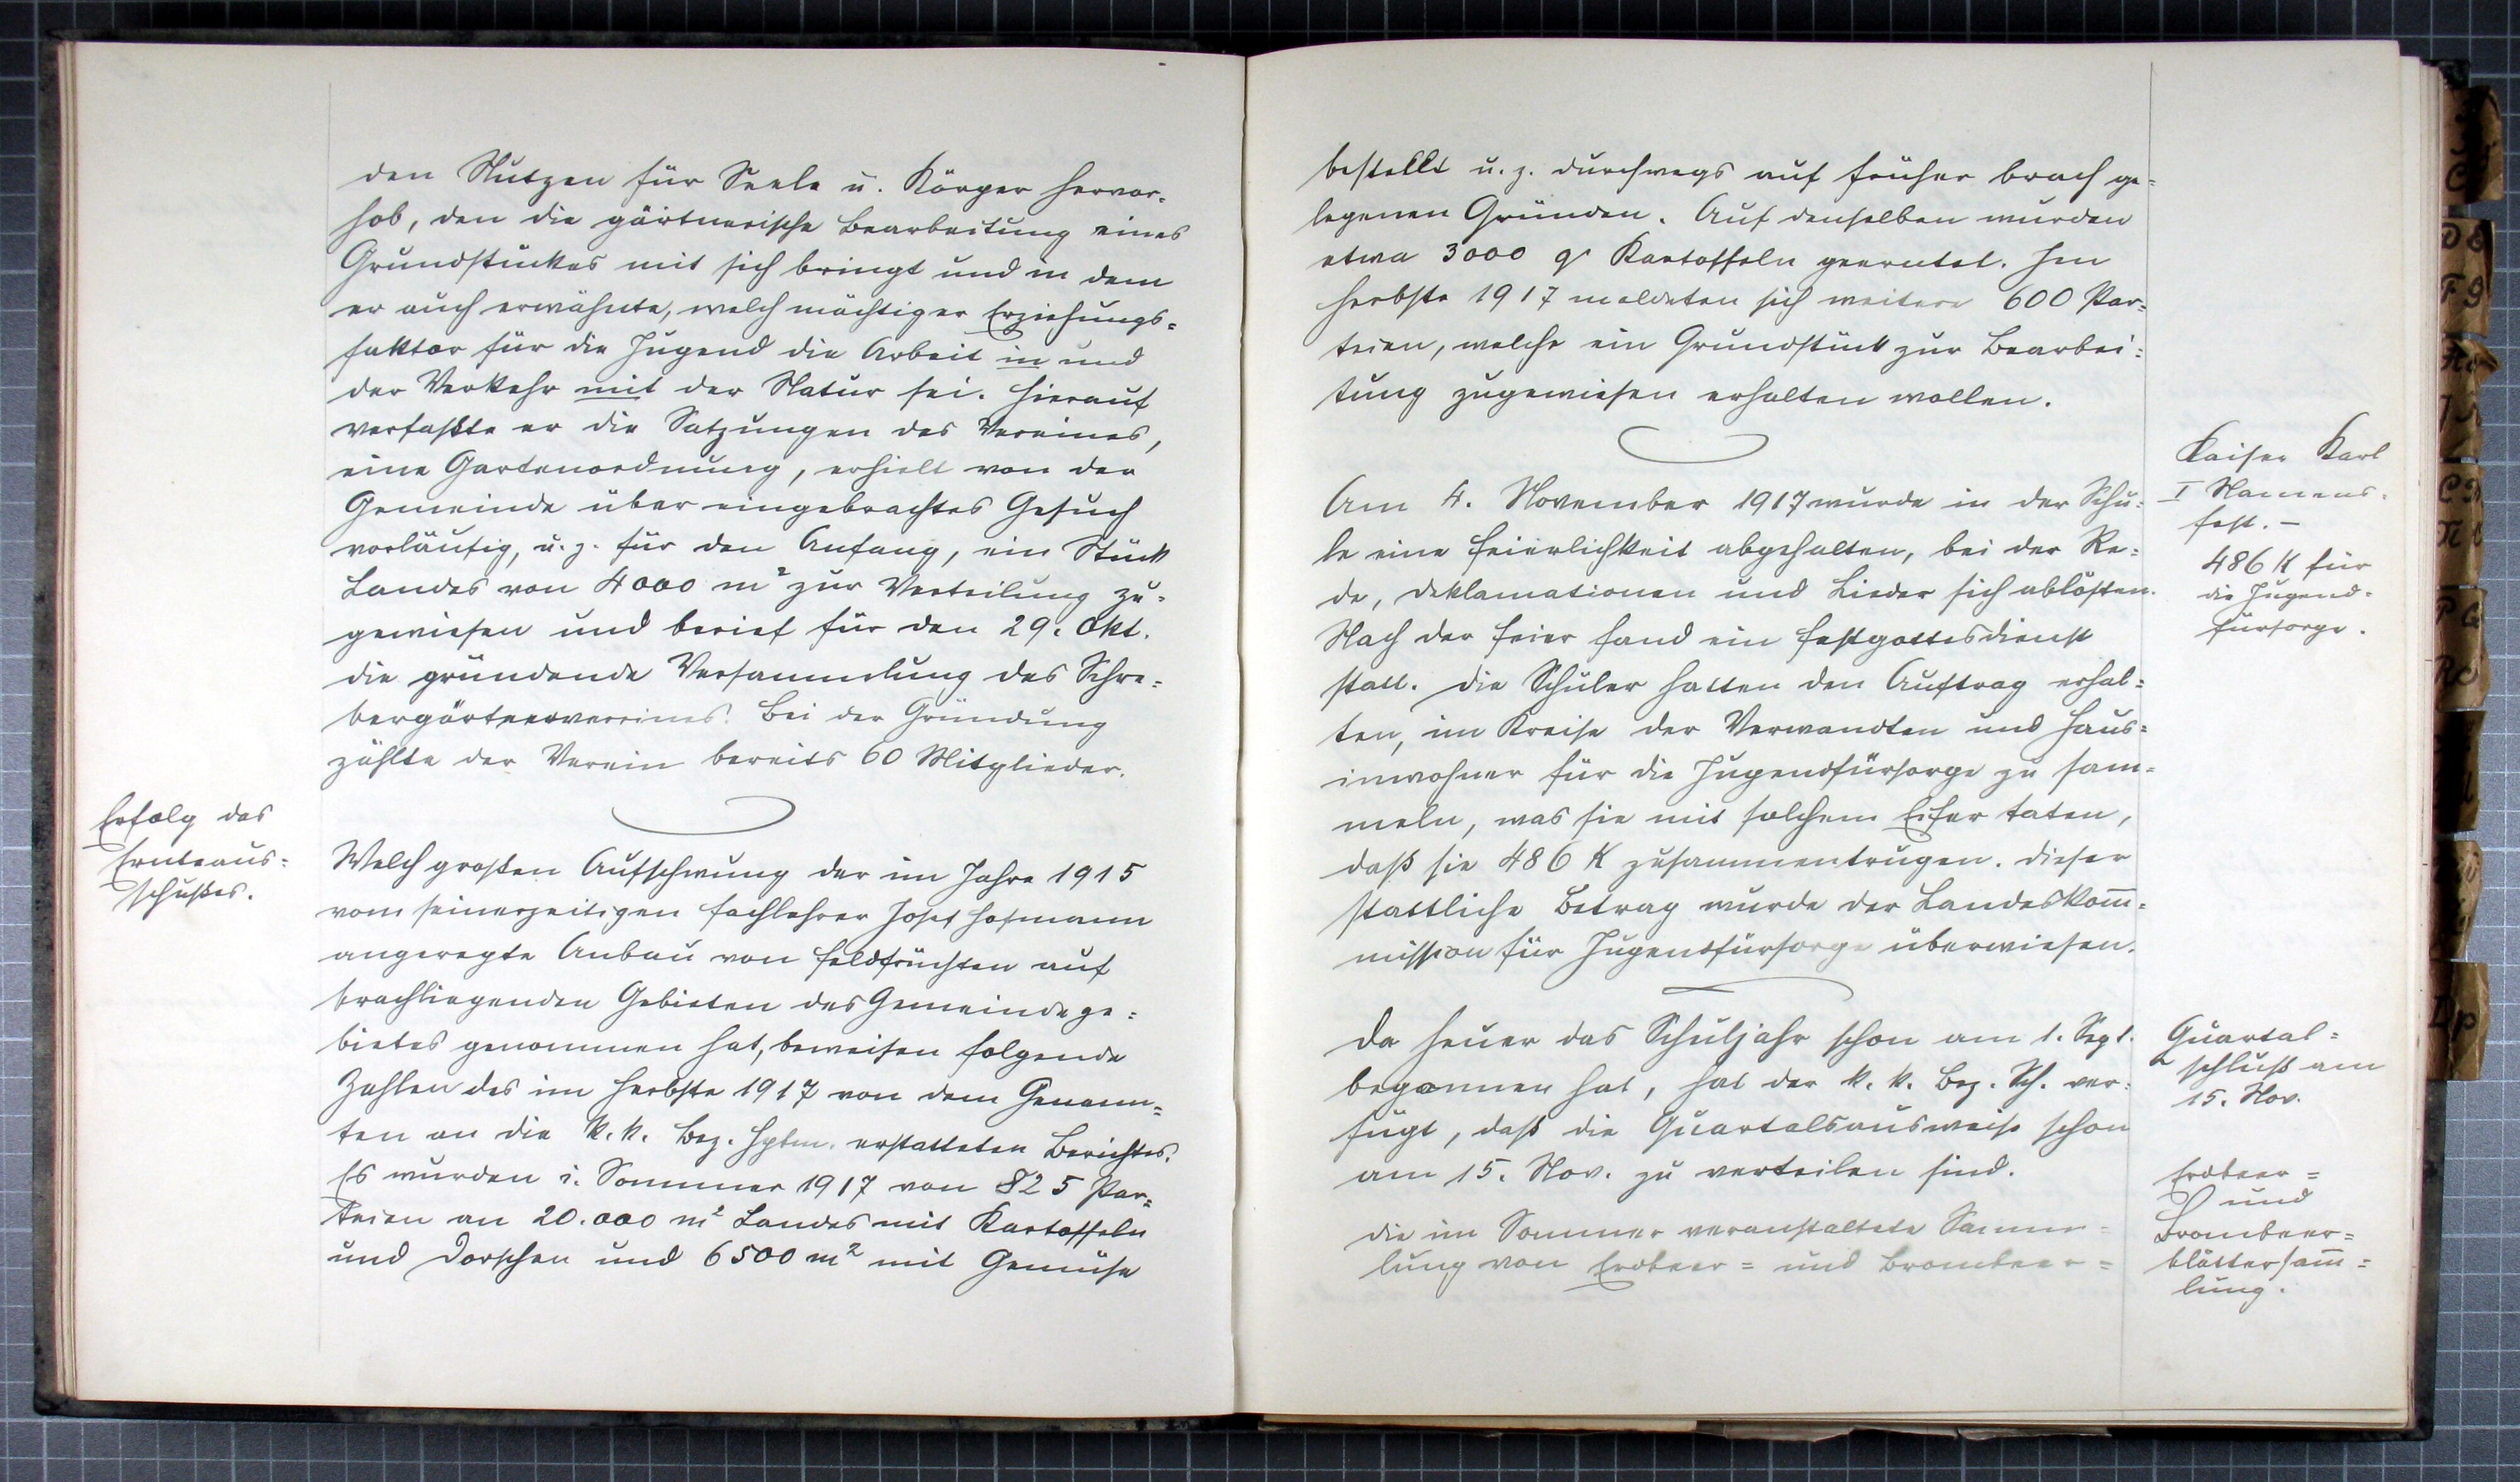 den Nutzen für Seele u. Körper hervor-
hob, den die gärtnerische Bearbeitung eines
Grundstückes mit sich bringt und in dem
er auch erwähnte, welch mächtiger Erziehungs=
faktor für die Jugend die Arbeit in und
der Verkehr mit der Natur sei. Hierauf
verfaßte er die Satzungen des Vereines,
eine Gartenordnung, erhielt von der
Gemeinde über eingebrachtes Gesuch
vorläufig, u. z. für den Anfang, ein Stück
Landes von 4000 m² zur Verteilung zu-
gewiesen und berief für den 29. Okt.
die gründende Versammlung des Schre=
bergärtnervereines. Bei der Gründung
zählte der Verein bereits 60 Mitglieder.
Erfolg des
Ernteaus=
schußes.
Welch großen Aufschwung der im Jahre 1915
vom seinerzeitigen Fachlehrer Josef Hofmann
angeregte Anbau von Feldfrüchten auf
brachliegenden Gebieten des Gemeindege=
bietes genommen hat, beweisen folgende
Zahlen des im Herbste 1917 von dem Genann=
ten an die k. k. Bez. Hptm. erstatteten Berichtes.
Es wurden i. Sommer 1917 von 825 Par=
teien an 20.000 m² Landes mit Kartoffeln
und Dorschen und 6500 m² mit Gemüse
bestellt u. z. durchwegs auf früher brach ge=
legenen Gründen. Auf denselben wurden
etwa 3000 q Kartoffeln geerntet. Im
Herbste 1917 meldeten sich weitere 600 Par=
teien, welche ein Grundstück zur Bearbei=
tung zugewiesen erhalten wollen.
Kaiser Karl
I Namens-
fest. –
486 K für
die Jugend-
fürsorge.
Am 4. November 1917 wurde in der Schu=
le eine Feierlichkeit abgehalten, bei der Re=
de, Deklamationen und Lieder sich ablösten.
Nach der Feier fand ein Festgottesdienst
statt. Die Schüler hatten den Auftrag erhal=
ten, im Kreise der Verwandten und Haus=
inwohner für die Jugendfürsorge zu sam=
meln, was sie mit solchem Eifer taten,
daß sie 486 K zusammentrugen. Dieser
stattliche Betrag wurde der Landeskom̄=
mission für Jugendfürsorge überwiesen.
Quartal=
schluß am
15. Nov.
Da heuer das Schuljahr schon am 1. Sept.
begonnen hat, hat der k. k. Bez. Sch. ver=
fügt, daß die Quartalsausweise schon
am 15. Nov. zu verteilen sind.
Erdbeer=
und
Brombeer=
blättersam̄=
lung.
Die im Sommer veranstaltete Samm=
lung von Erdbeer= und Brombeer=